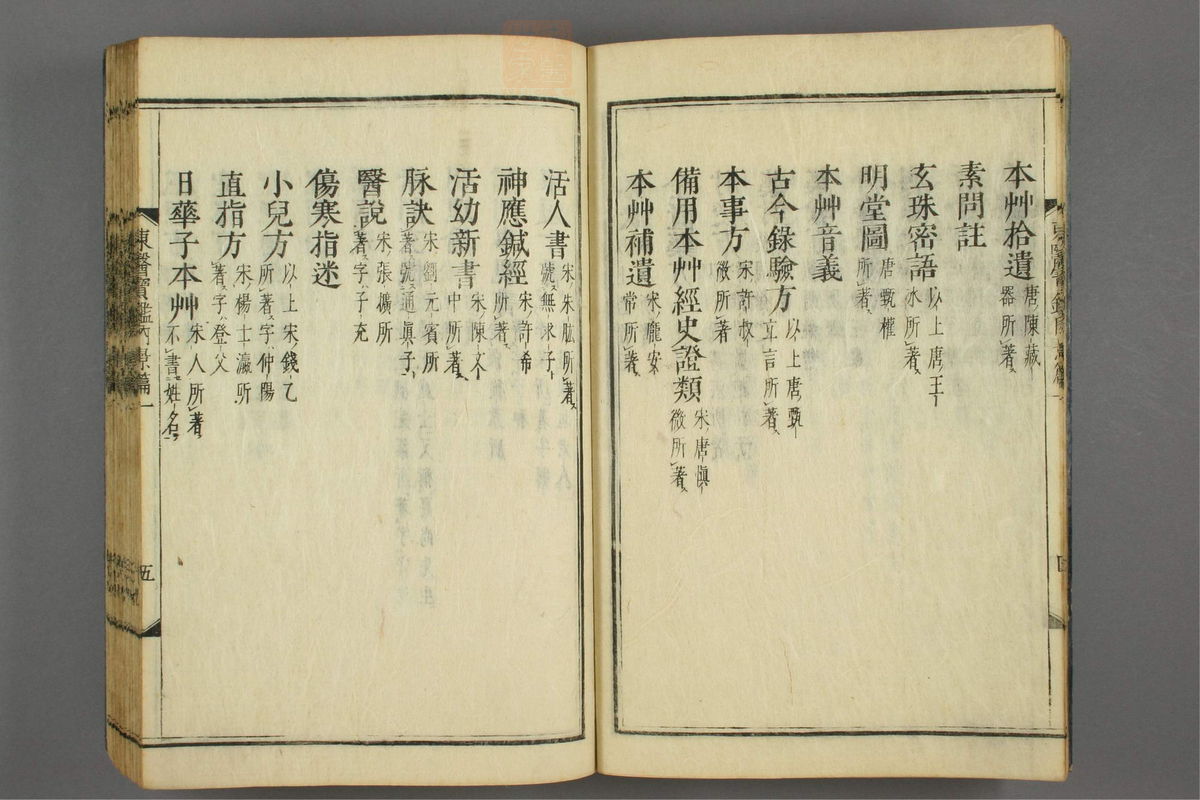 本艸拾遺 唐陳藏器所著
素問註
玄珠密語 以上唐王冰所著
明堂圖 唐甄權所著
本艸音義
古今錄驗方 以上唐甄立言所著
本事方 宋許叔微所著
備用本艸經史證類 宋唐愼微所著
本艸補遺 宋龐安常所著
活人書 宋朱肱所著號無求子
神應鍼經 宋許希所著
活幼新書 宋陳文中所著
脉訣 宋劉元賓所著號通眞子
醫說 宋張擴所著字子充
傷寒指迷
小兒方 以上宋錢乙所著字仲陽
直指方 宋楊士瀛所著字登父
日華子本艸 宋人所著不書姓名
東醫寶鑑內景篇一
五